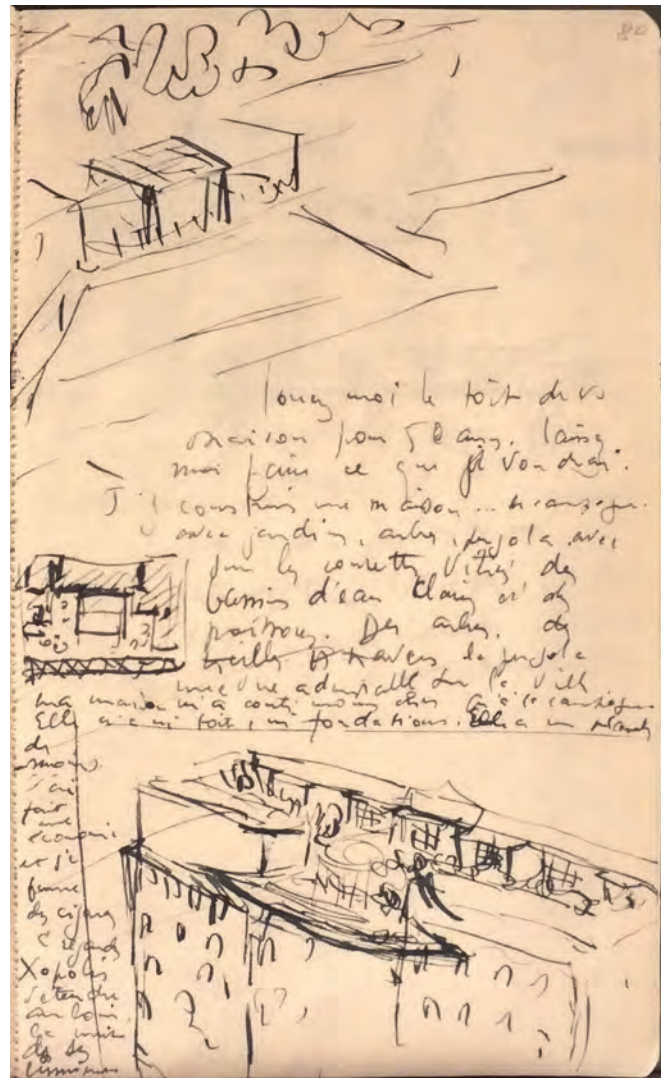 80
louez moi le toit de vo
maison pour 50 ans. laissez
moi faire ce que je voudrai.
J'y construis une maison ... de campagne
avec jardins, arbres, pergola avec
sur les courettes vitrées des
bassins d'eau claire et des
poissons. Des arbres, des
A travers la pergola
une vue admirable sur la ville
ma maison m'a couté moins cher qu'à la campagne
Elle n'a ni toit, ni fondations. Elle a un
de
moins.
J'ai
fait
une
économie
et je
fume
des cigares
& regarde
Xopolis
s'etendre
au loin.
la nuit
de ses
lumières